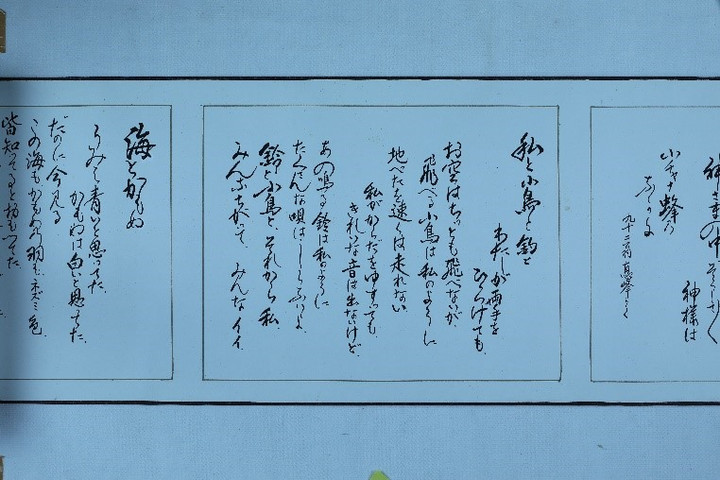 神様は
小ちゃな蜂の
私と小鳥と鈴と
わたしが両手を
ひろげても
お空はちっとも飛べないが
飛べる小鳥は私のように
地べたを速くは走れない
私がからだをゆすっても
きれいな音は出ないけど
あの鳴る鈴は私のように
たくさんな唄はしらないよ
鈴と小鳥とそれから私
みんなちがって みんなイイ
海とかもめ
うみは青いと思ってた
かもめは白いと思ってた
だのに今見る
この海もかもめの羽もネズミ色
皆知ってると